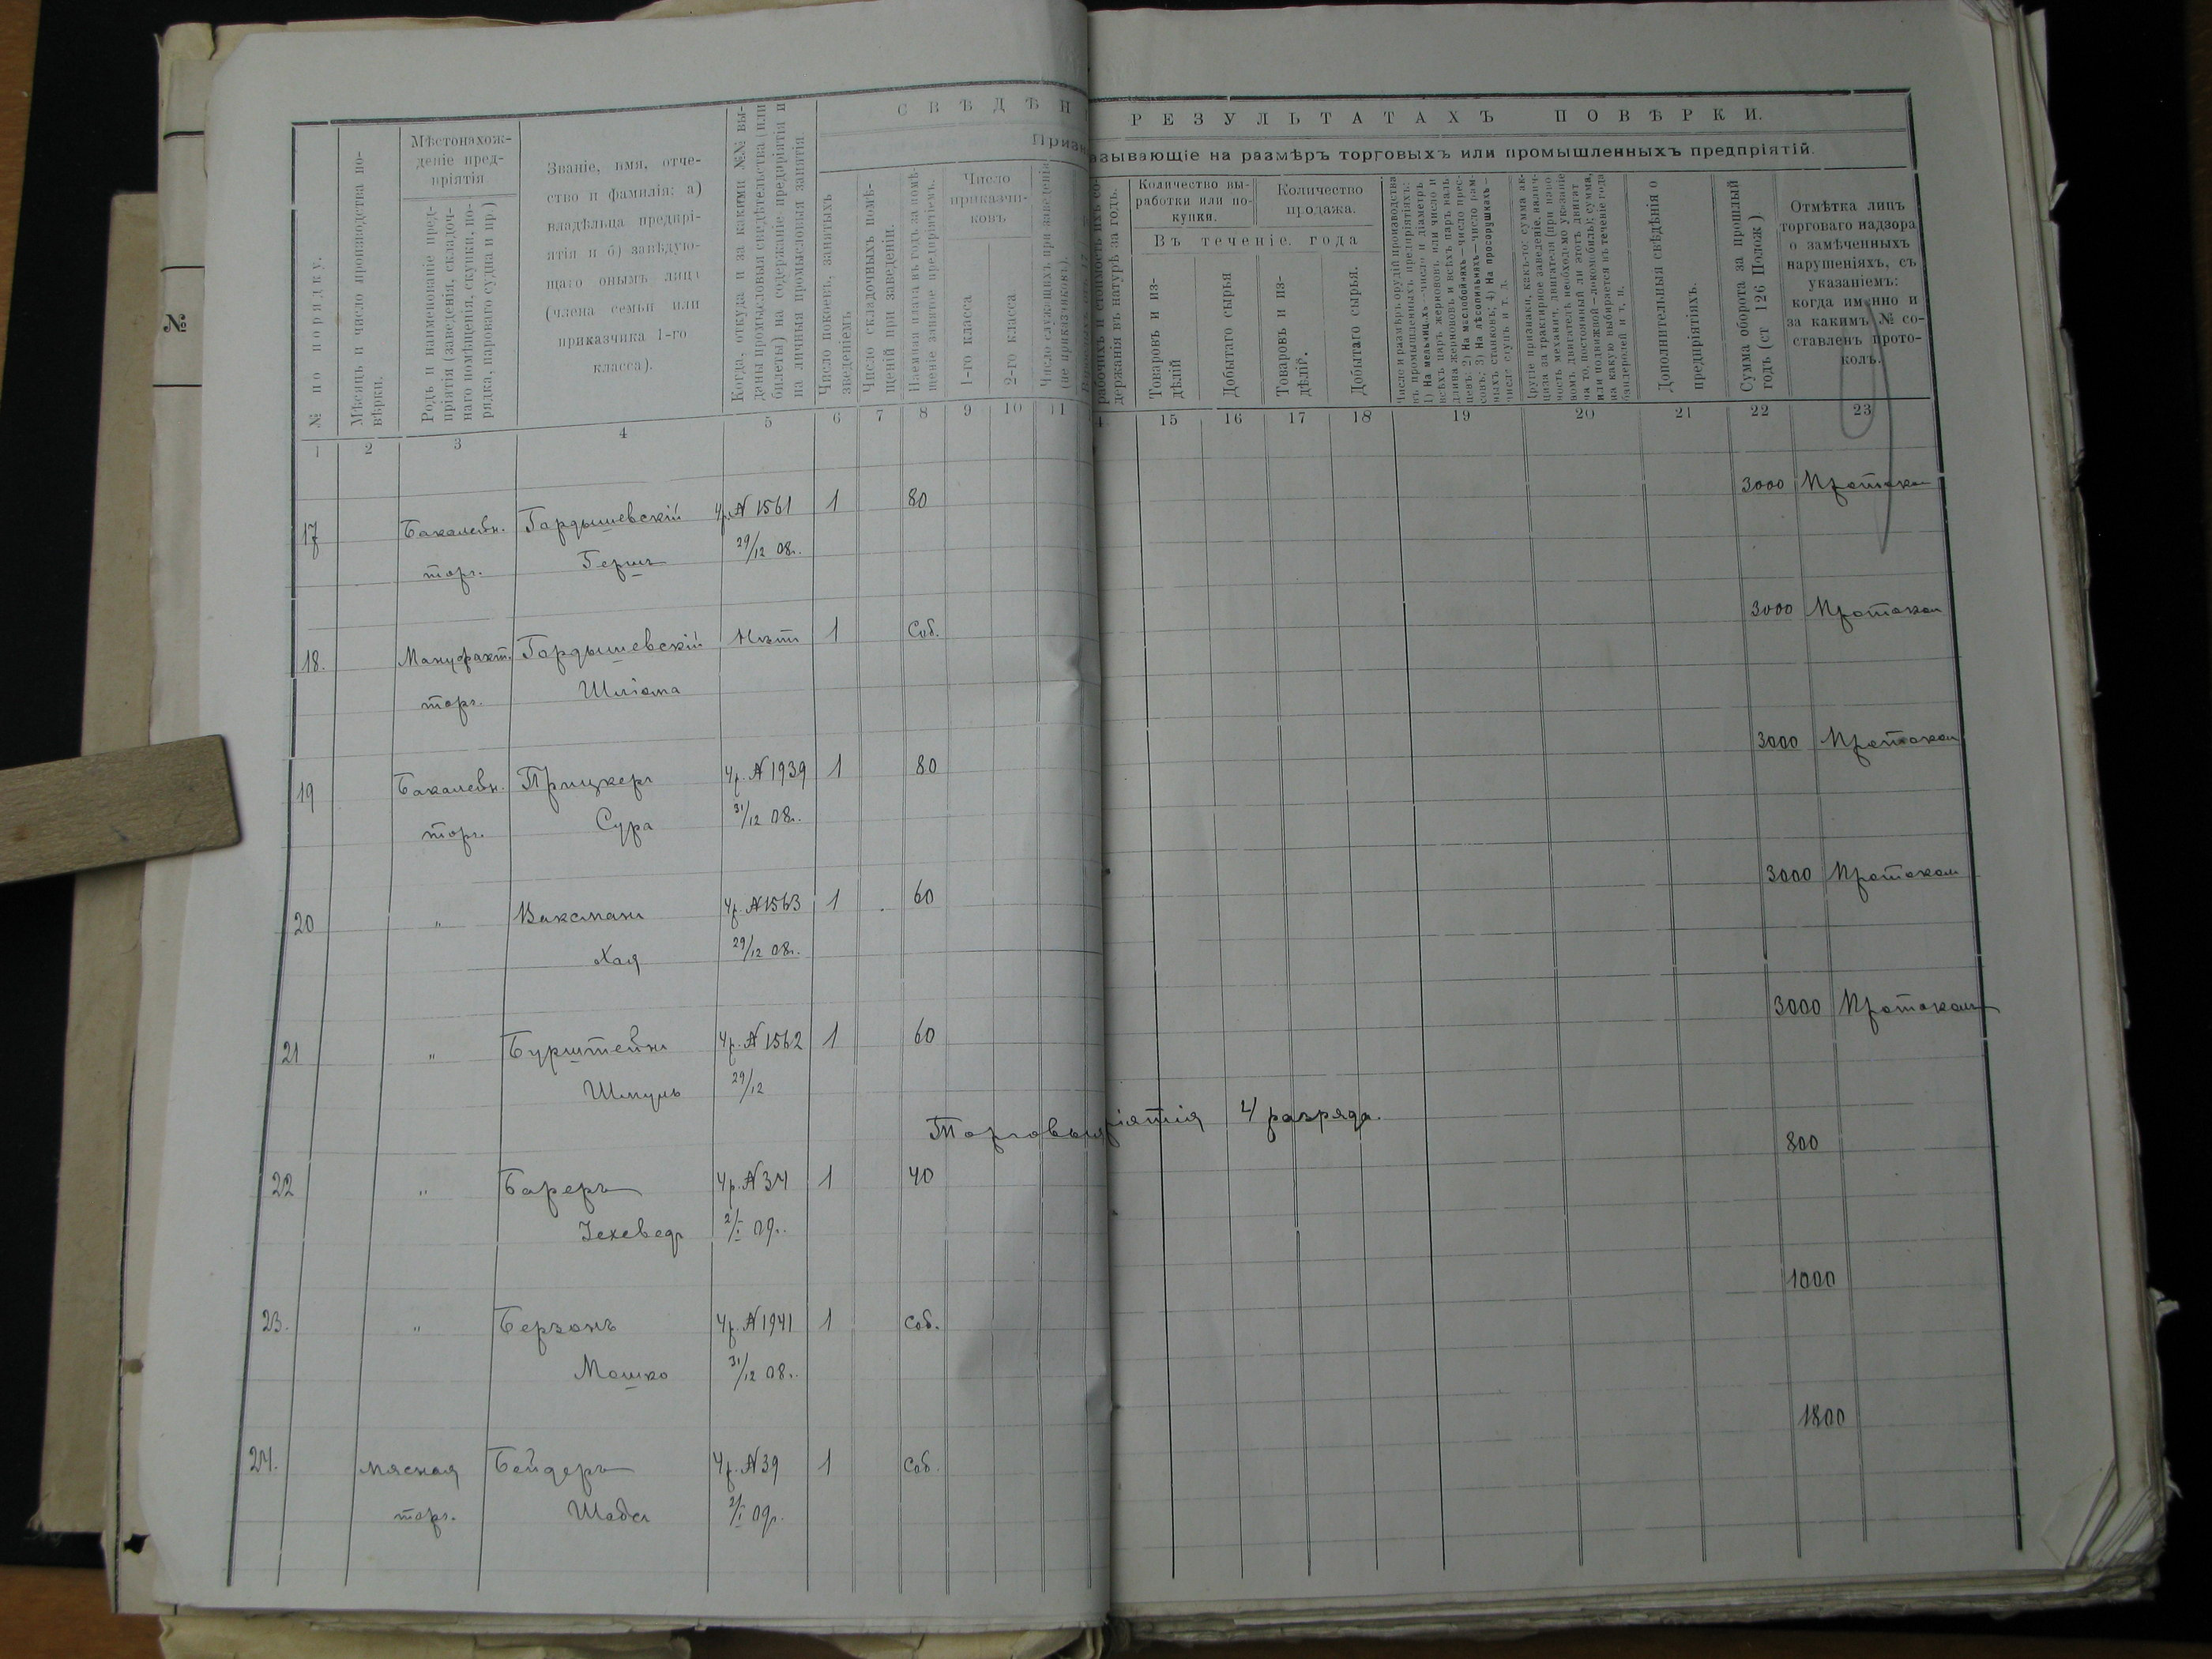 СВѢДѢН РЕЗУЛЬТАТАХЪ ПОВѢРКИ.
Призн азывающіе на размѣръ торговыхъ или промышленныхъ предпріятій.
№
№ по порядку.
Мѣсяцъ и число производства по-
вѣрки.
Мѣстонахож-
деніе пред-
пріятія
Родъ и наименованіе пред-
пріятія (заведенія, складоч-
наго помѣщенія, скупки, по-
рядка, парового судна и пр.)
Званіе, имя, отче-
ство и фамилія: а)
владѣльца предпрі-
ятія и б) завѣдую-
щаго онымъ лица
(члена семьи или
приказчика 1-го
класса).
Когда, откуда и за какими №№ вы-
даны промысловыя свидѣтельства (или
билеты) на содержаніе предпріятія и
на личныя промысловыя занятія.
Число покоевъ, занятыхъ
зведеніемъ
Число складочныхъ помѣ-
щеній при заведеніи.
Наемная плата въ годъ за помѣ-
щеніе занятое предпріятіемъ.
Число
приказчи-
ковъ
1-го класса
2-го класса
Число служащихъ при заведеніи
(не приказчиковъ).
рабочихъ и стоимость ихъ со-
держанія въ натурѣ за годъ.
Количество вы-
работки или по-
купки.
Количество
продажа.
Въ теченіе года
Товаровъ и из-
дѣлій
Добытаго сырья
Товаровъ и из-
дѣлій.
Добытаго сырья.
Число и размѣръ орудій производства
въ промышленныхъ предпріятіяхъ:
1) На мельницахъ—число и діаметръ
всѣхъ паръ жернововъ или число и
длина жернововъ и всѣхъ паръ валь
цевъ; 2) На маслобойняхъ—число прес-
совъ; 3) На лѣсопильняхъ—число рам-
ныхъ станковъ; 4) На просорушкахъ—
число ступъ и т. д.
Другіе признаки, какъ-то: сумма ак-
циза за трактирное заведеніе, налич-
ность механич. двигателя (при паро-
вомъ двигателѣ необходимо указаніе
на то, постоянный ли этотъ двигат
или подвижной—локомобиль); сумма,
на какую выбирается въ теченіе года
бандеролей и т. п.
Дополнительныя свѣдѣнія о
предпріятіяхъ.
Сумма оборота за прошлый
годъ (ст 126 Полож )
Отмѣтка лицъ
торговаго надзора
о замѣченныхъ
нарушеніяхъ, съ
указаніемъ:
когда именно и
за какимъ № со-
ставленъ прото-
колъ.
1 2 3 4 5 6 7 8 9 10 11 4 15 16 17 18 19 20 21 22 23
17 Бакалейн. Гордышевскій 4р. № 1561 1 80 3000 Протокол
торг. Герш 29/12 08г.
18. Мануфакт. Гордышевскій Нѣт 1 Соб. 3000 Протокол
торг. Шліома
19 Бакалейн. Прицкер 4р. № 1939 1 80 3000 Протокол
торг. Сура 31/12 08г.
20 " Ваксман 4р. № 1563 1 60 3000 Протокол
Хая 29/12 08г.
21 " Бурштейн 4р. № 1562 1 60 3000 Протокол
Шмуль 29/12
Торговыя ріятія 4 разряда.
22 " Бареръ 4р. № 34 1 40 800
Іехевед 2/I 09г.
23. " Берзонъ 4р. № 1941 1 Соб. 1000
Мошко 31/12 08г.
24. мясная Бейдеръ 4р. № 39 1 Соб. 1800
торг. 2/I 09г.